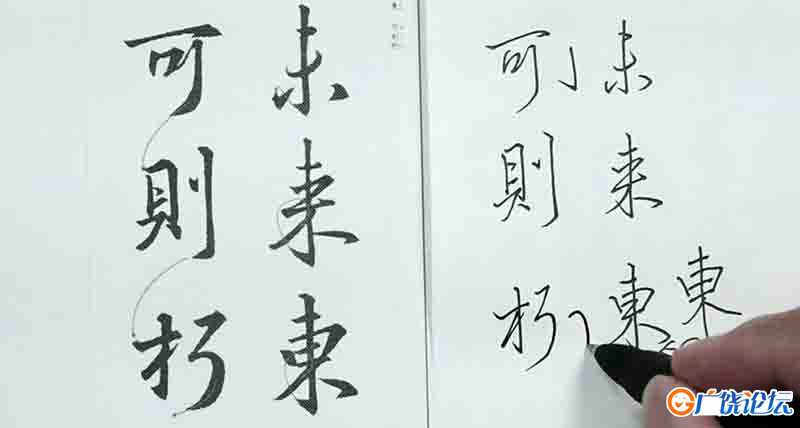 未来東
可則朽
東
未来東
可則朽
广饶论坛